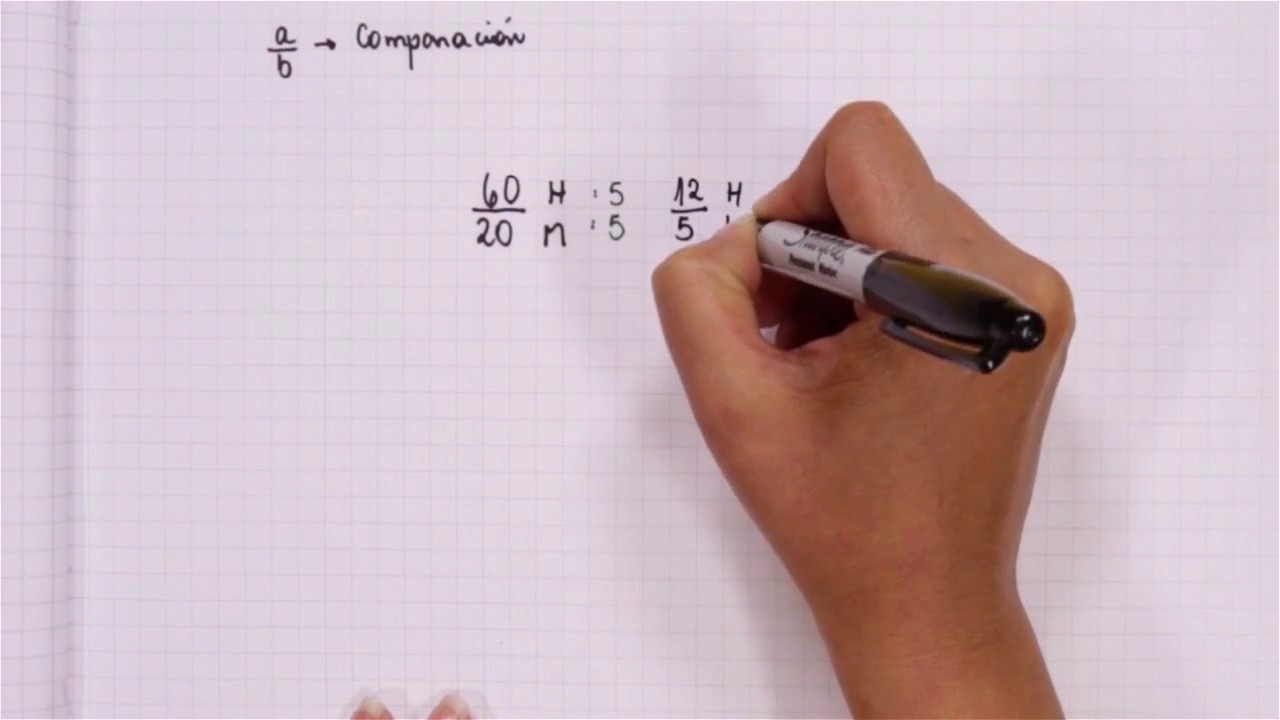 a/b → Comparación
60 H : 5 12 H
20 M : 5 5
Sharpie
Permanent Marker